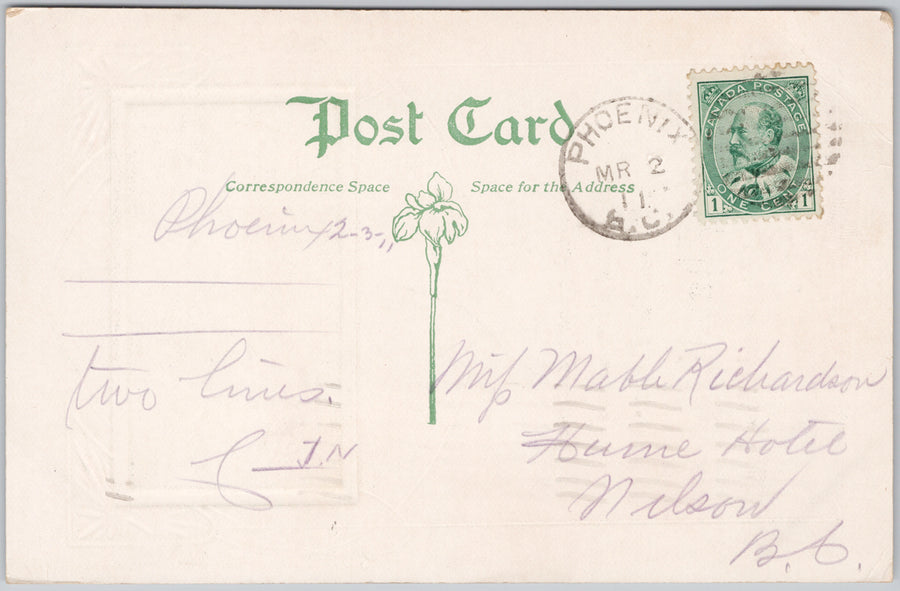 Post Card
Correspondence Space
Space for the Address
PHOENIX
MR 2
11
B.C.
CANADA POSTAGE
1 ONE CENT 1
Phoenix 2-3-11
two lines.
J.N
Miss Mable Richardson
Hume Hotel
Nelson
B.C.